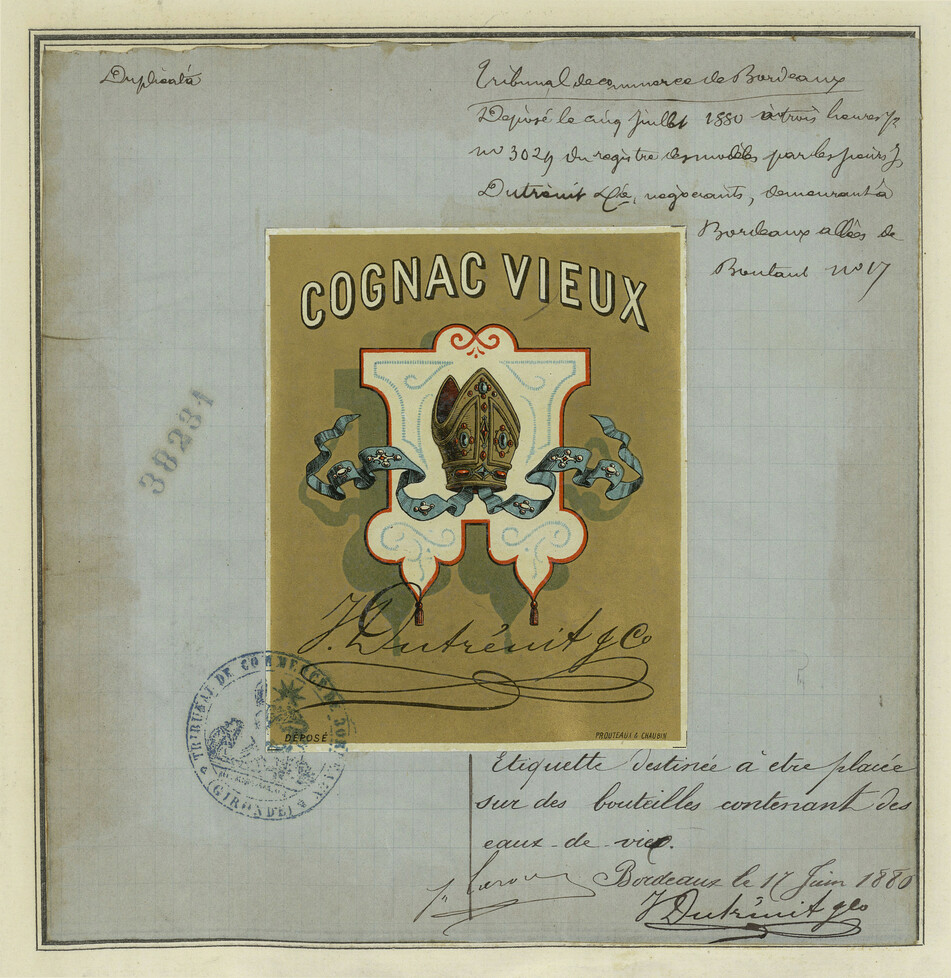 Duplicata
Tribunal de commerce de Bordeaux
Déposé le cinq juillet 1880 à trois heures
no 3029 du registre des modèles par les sieurs J
Dutrénit & Cie, négociants, demeurant à
Bordeaux allées de
Boutaut no 17
COGNAC VIEUX
38231
J. Dutrénit & Co
TRIBUNAL DE COMMERCE DE BORDEAUX
(GIRONDE)
DÉPOSÉ
PROUTEAUX & CHAUBIN
Etiquette destinée à etre placée
sur des bouteilles contenant des
eaux-de-vie.
Bordeaux le 17 Juin 1880
J Dutrénit & Co